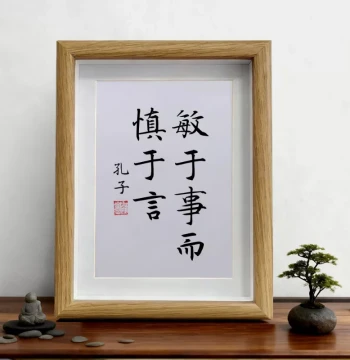 敏于事而
慎于言
孔子